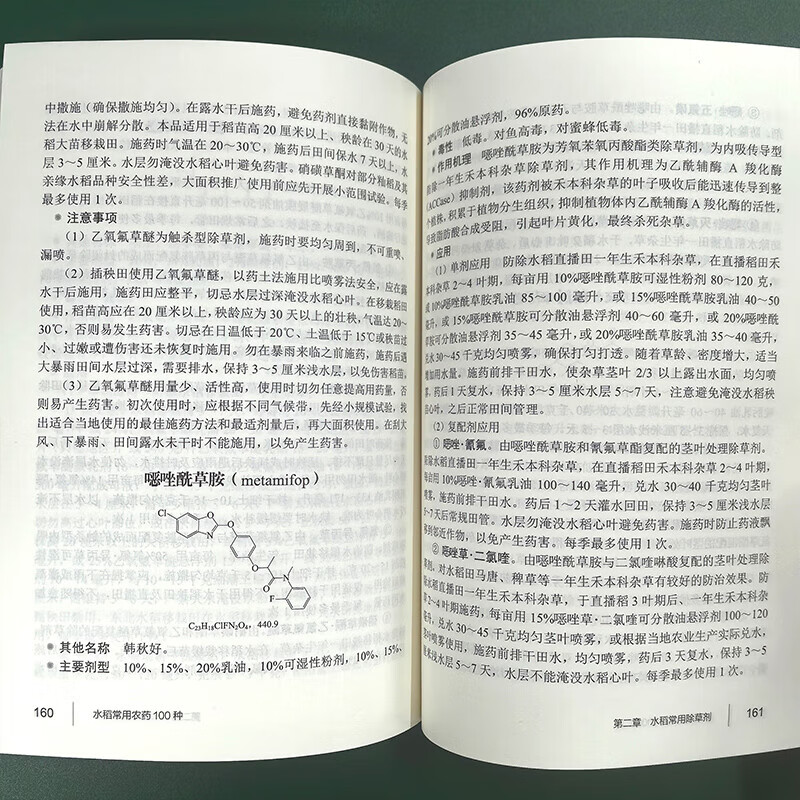 中撒施（确保撒施均匀）。在露水干后施药，避免药剂直接黏附作物，无
法在水中崩解分散。本品适用于稻苗高20厘米以上、秧龄在30天的水
稻大苗移栽田。施药时气温在20～30℃，施药后田间保水7天以上，水
层3～5厘米。水层勿淹没水稻心叶避免药害。硝磺草酮对部分籼稻及其
亲缘水稻品种安全性差，大面积推广使用前应先开展小范围试验。每季
最多使用1次。
注意事项
（1）乙氧氟草醚为触杀型除草剂，施药时要均匀周到，不可重喷、
漏喷。
（2）插秧田使用乙氧氟草醚，以药土法施用比喷雾法安全，应在露
水干后施用，施药田应整平，切忌水层过深淹没水稻心叶。在移栽稻田
使用，稻苗高应在20厘米以上，秧龄应为30天以上的壮秧，气温达20～
30℃，否则易发生药害。切忌在日温低于20℃、土温低于15℃或秧苗过
小、过嫩或遭伤害还未恢复时施用。勿在暴雨来临之前施药，施药后遇
大暴雨田间水层过深，需要排水，保持3～5厘米浅水层，以免伤害稻苗。
（3）乙氧氟草醚用量少、活性高，使用时切勿任意提高用药量，否
则易产生药害。初次使用时，应根据不同气候带，先经小规模试验，找
出适合当地使用的最佳施药方法和最适剂量后，再大面积使用。在刮大
风、下暴雨、田间露水未干时不能施用，以免产生药害。
噁唑酰草胺（metamifop）
Cl
O
O
N
O
N
O
F
C₂₃H₁₈ClFN₂O₄，440.9
其他名称 韩秋好。
主要剂型 10%、15%、20%乳油，10%可湿性粉剂，10%、15%、
160
水稻常用农药100种
20%可分散油悬浮剂，96%原药。
毒性 低毒。对鱼高毒，对蜜蜂低毒。
作用机理 噁唑酰草胺为芳氧苯氧丙酸酯类除草剂，为内吸传导型
防除一年生禾本科杂草除草剂，其作用机理为乙酰辅酶A羧化酶
（ACCase）抑制剂，该药剂被禾本科杂草的叶子吸收后能迅速传导到整
个植株，积累于植物分生组织，抑制植物体内乙酰辅酶A羧化酶的活性，
导致脂肪酸合成受阻，引起叶片黄化，最终杀死杂草。
应用
（1）单剂应用 防除水稻直播田一年生禾本科杂草，在直播稻田禾
本科杂草2～4叶期，每亩用10%噁唑酰草胺可湿性粉剂80～120克，
或10%噁唑酰草胺乳油85～100毫升，或15%噁唑酰草胺乳油40～50
毫升，或15%噁唑酰草胺可分散油悬浮剂40～60毫升，或20%噁唑酰
草胺可分散油悬浮剂35～45毫升，或20%噁唑酰草胺乳油35～40毫升，
兑水30～45千克均匀喷雾，确保打匀打透。随着草龄、密度增大，适当
增加用水量。施药前排干田水，使杂草茎叶2/3以上露出水面，均匀喷
雾，药后1天复水，保持3～5厘米水层5～7天，注意避免淹没水稻秧
苗心叶，之后正常田间管理。
（2）复配剂应用
① 噁唑·氰氟。由噁唑酰草胺和氰氟草酯复配的茎叶处理除草剂。
防除水稻直播田一年生禾本科杂草，在直播稻田禾本科杂草2～4叶期，
每亩用10%噁唑·氰氟乳油100～140毫升，兑水30～40千克均匀茎叶
喷雾，施药前排干田水。药后1～2天灌水回田，保持3～5厘米浅水层
5～7天后常规田管。水层勿淹没水稻心叶避免药害。施药时防止药液飘
移到邻近作物，以免产生药害。每季最多使用1次。
② 噁唑草·二氯喹。由噁唑酰草胺与二氯喹啉酸复配的茎叶处理除
草剂，对水稻田马唐、稗草等一年生禾本科杂草有较好的防治效果。防
除水稻直播田一年生禾本科杂草，于直播稻3叶期后、一年生禾本科杂
草2～4叶期施药，每亩用15%噁唑草·二氯喹可分散油悬浮剂100～120
毫升，兑水30～45千克均匀茎叶喷雾，或根据当地农业生产实际兑水，
茎叶喷雾使用，施药前排干田水，均匀喷雾，药后3天复水，保持3～5
厘米浅水层5～7天，水层不能淹没水稻心叶。每季最多使用1次。
第二章 水稻常用除草剂
161